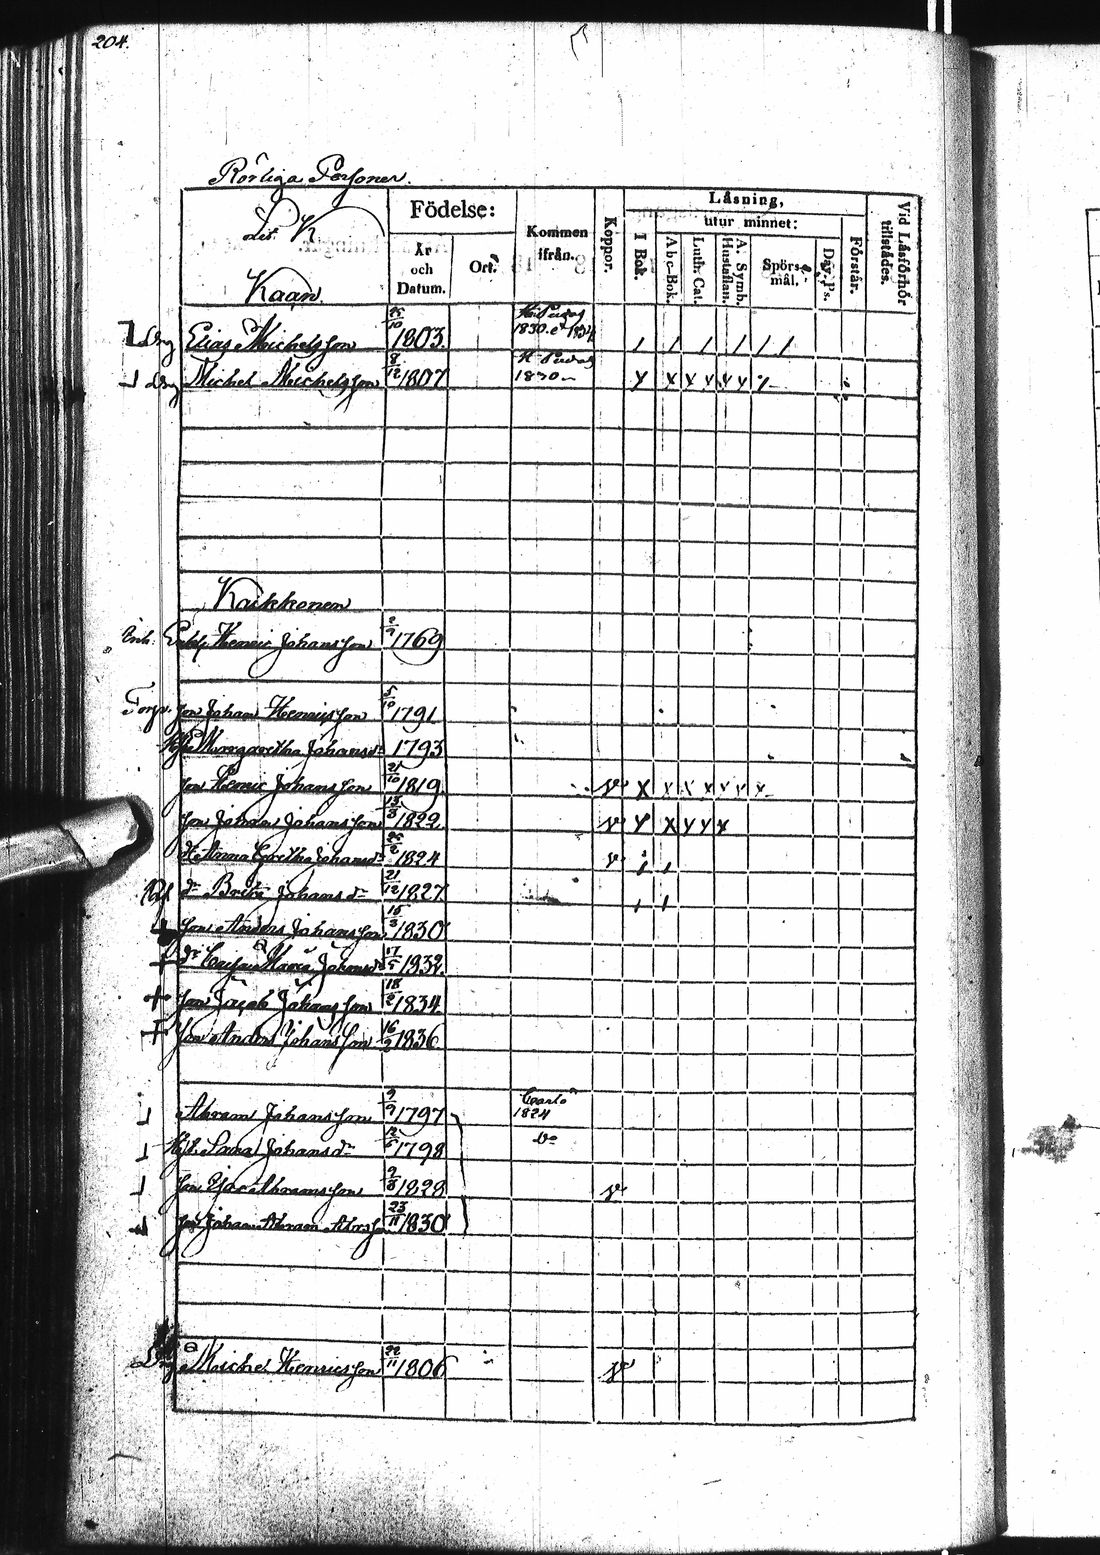 204.
Rörliga Personer.
Litt. K
Födelse:
År och Datum.
Ort.
Kommen ifrån.
Koppor.
Läsning,
utur minnet:
I Bok.
Abc-Bok.
Luth. Cat.
A. Symb. Hustaflan.
Spörsmål.
Dav. Ps.
Förstår.
Vid Läsförhör tillstädes.
Kaan
Drg Elias Michelsson 25/10 1803. 1830. 1834 / / / / / /
Drg Michel Michelsson 8/12 1807 1830 x x x x x x
Kaikkonen
Inh. Henric Johansson 1769
Torp. Son Johan Henricsson 5/10 1791
Hu Margaretha Johansdr 1793
Son Henric Johansson 21/10 1819. v x x x x x x x
Son Johan Johansson 1822. v x x x x x
Dr Anna Gretha Johansdr 1824 v / /
Dr Brita Johansdr 21/12 1827. / /
Son Anders Johansson 1830
Dr Caisa Maria Johansdr 17/5 1932.
Son Jacob Johansson 18/2 1834.
Son Anders Johansson 1836.
Abram Johansson 9/9 1797 Carlö 1824
Hu Sara Johansdr 12/5 1798 Do
Son Abramsson 9/8 1828 v
Son Johan Abram Abrsson 23/11 1830
Drg Michel Henricsson 22/11 1806 v